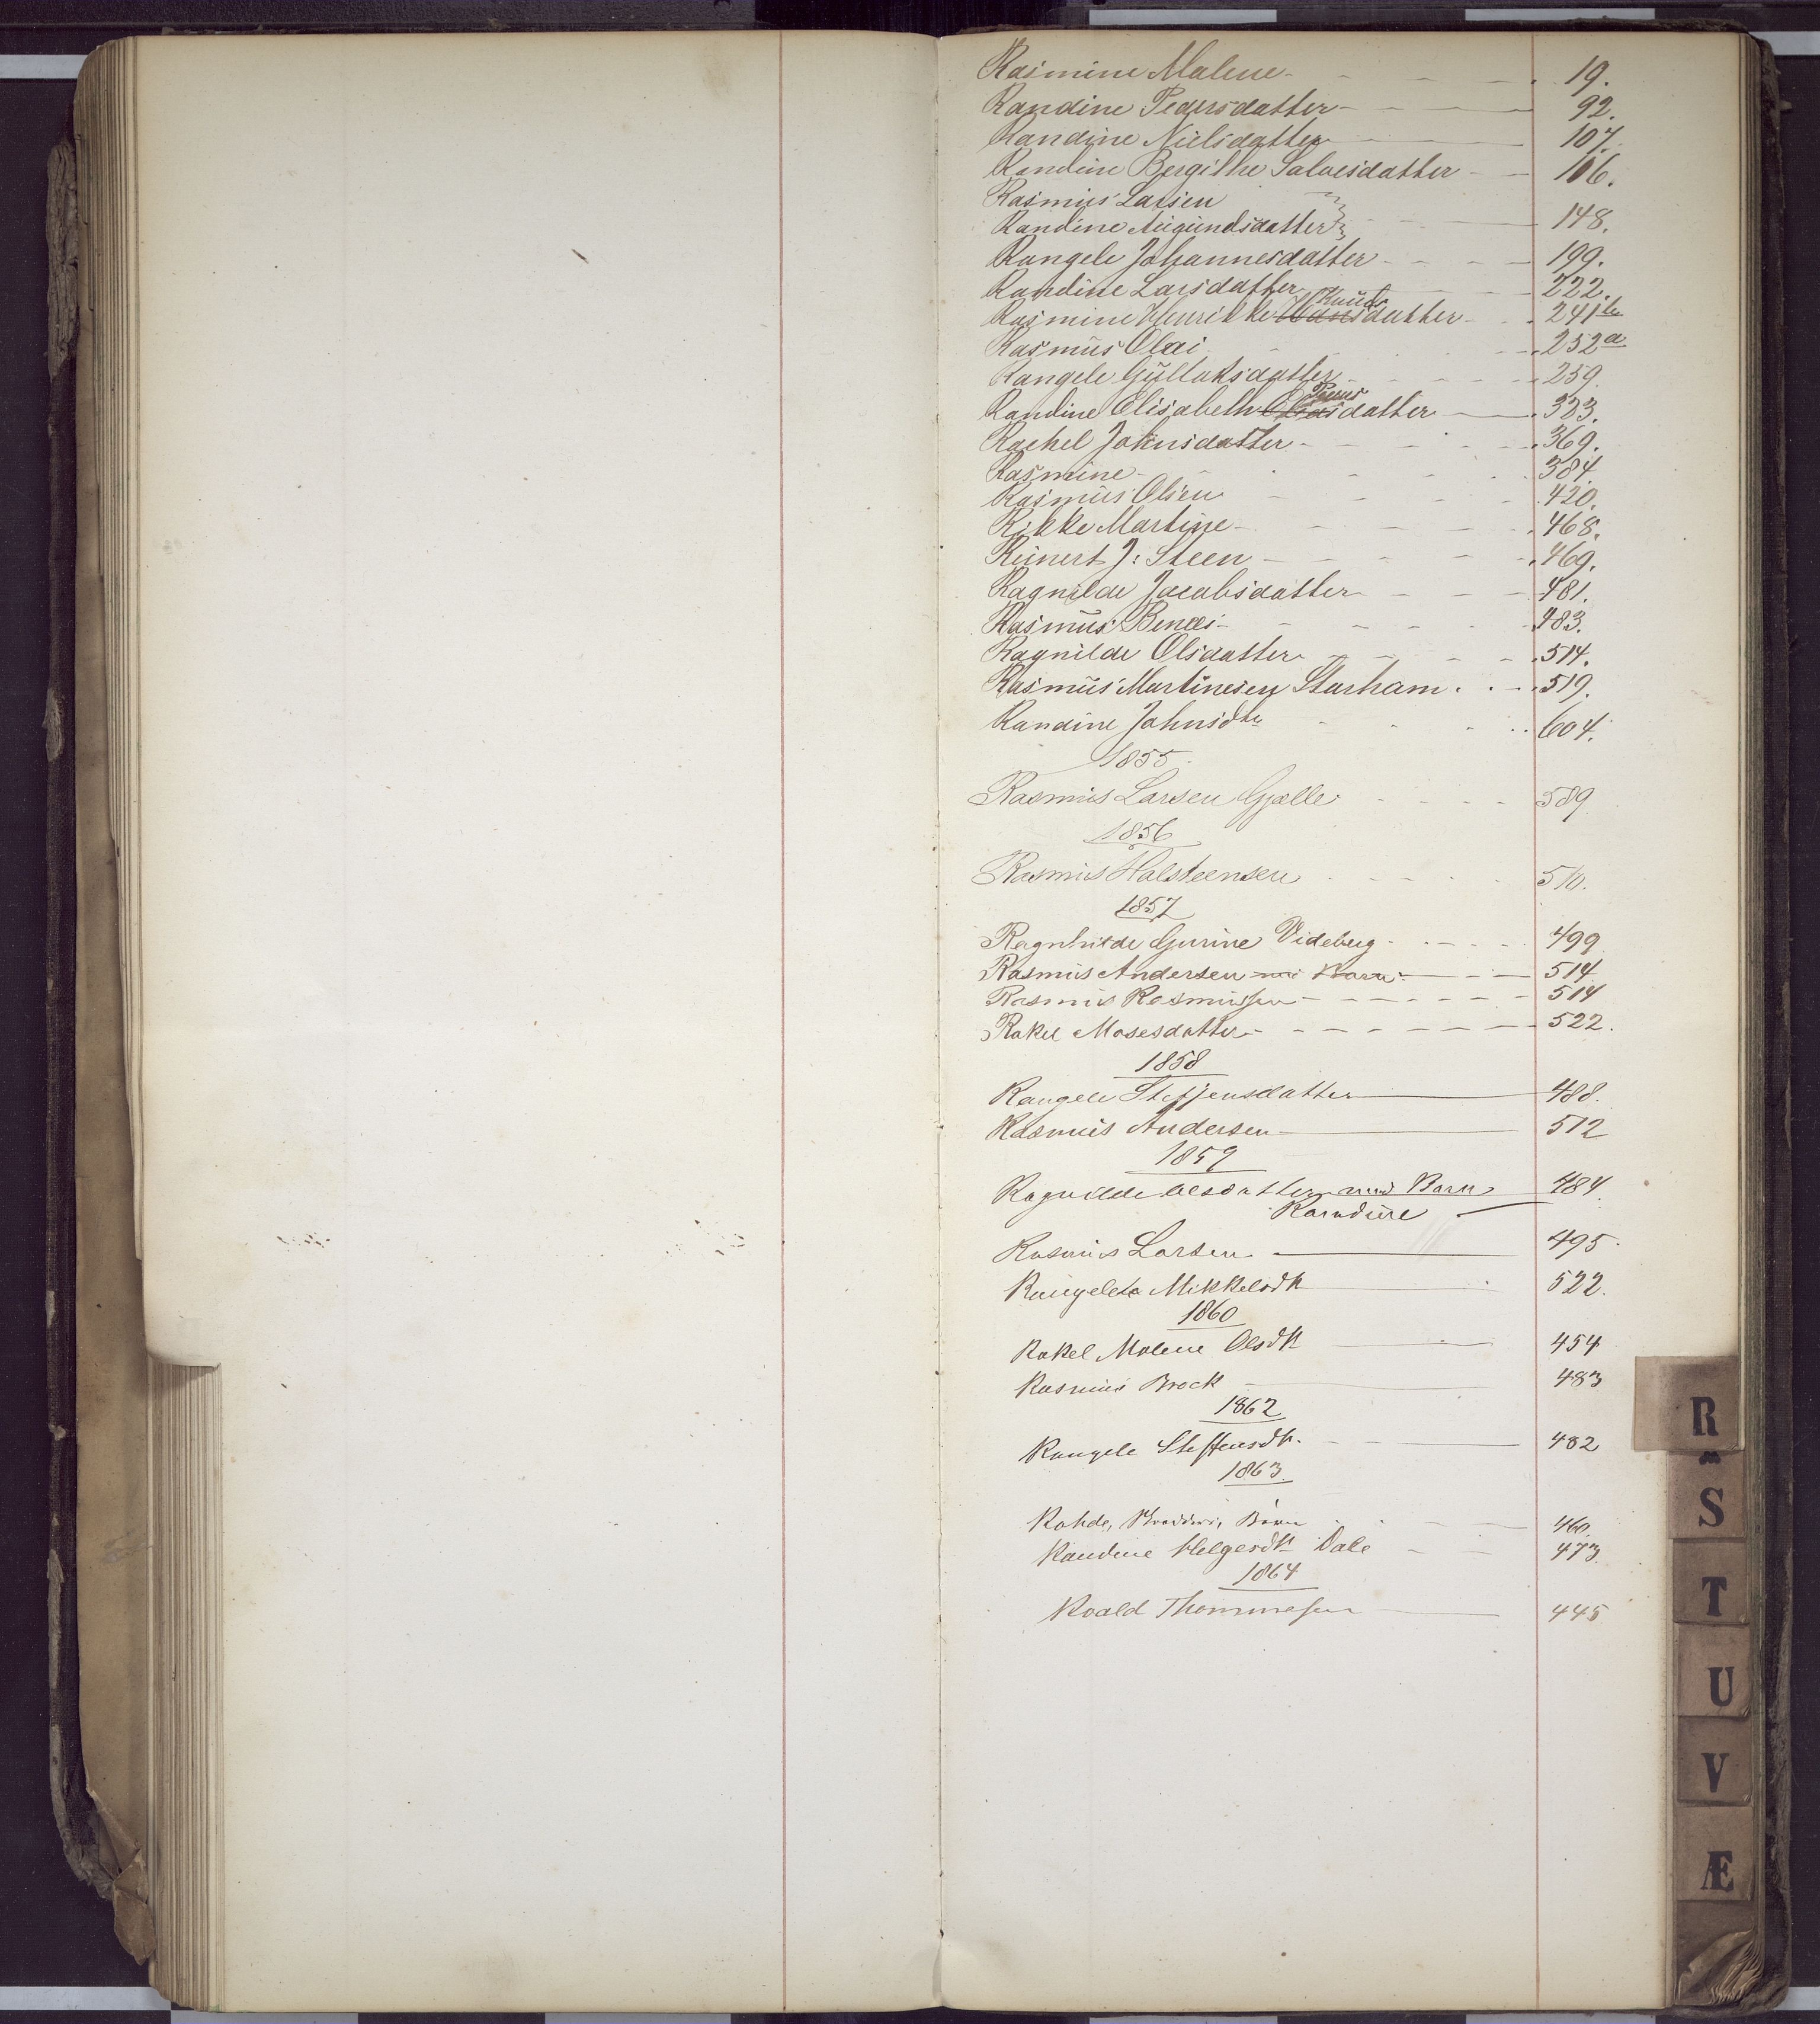 Rasmine Malene 19.
Randine Pedersdatter 92.
Randine Nielsdatter 107.
Randine Bergithe Salvesdatter 106.
Rasmus Larsen
Randine Augundsdatter 148.
Rangele Johannesdatter 199.
Randine Larsdatter 222.
Knuds
Rasmine Henrikke Hansdatter 241 b
Rasmus Olai 252 a
Rangele Gullaksdatter 259
Randine Elisabeth datter 323.
Rachel Johnsdatter 369.
Rasmine 384.
Rasmus Olsen 420.
Rikke Martine 468.
Reinert J: Steen 469.
Ragnilde Jacobsdatter 481.
Rasmus Benæi 483.
Ragnilde Olsdatter 514.
Rasmus Martinesen Starham 519.
Randine Johnsdtr 604.
1855.
Rasmus Larsen Gjælle 589
1856
Rasmus Halsteensen 510.
1857
Ragnhilde Gurine Videberg 499
Rasmus Andersen med Barn 514
Rasmus Rasmussen 514
Rakel Mosesdatter 522.
1858
Rangele Steffensdatter 488.
Rasmus Andersen 512
1859
Ragnilde Olesdatter med Barn 484.
Randine
Rasmus Larsen 495.
Rangele Mikkelsdtr 522.
1860
Rakel Malene Olsdtr 454
Rasmus Brock 483
1862
Rangele Steffensdtr. 482
1863.
Rohde, Børn 460.
Randine Helgesdtr Dale 473.
1864
Roald Thommesen 445
R
S
T
U
V
Æ